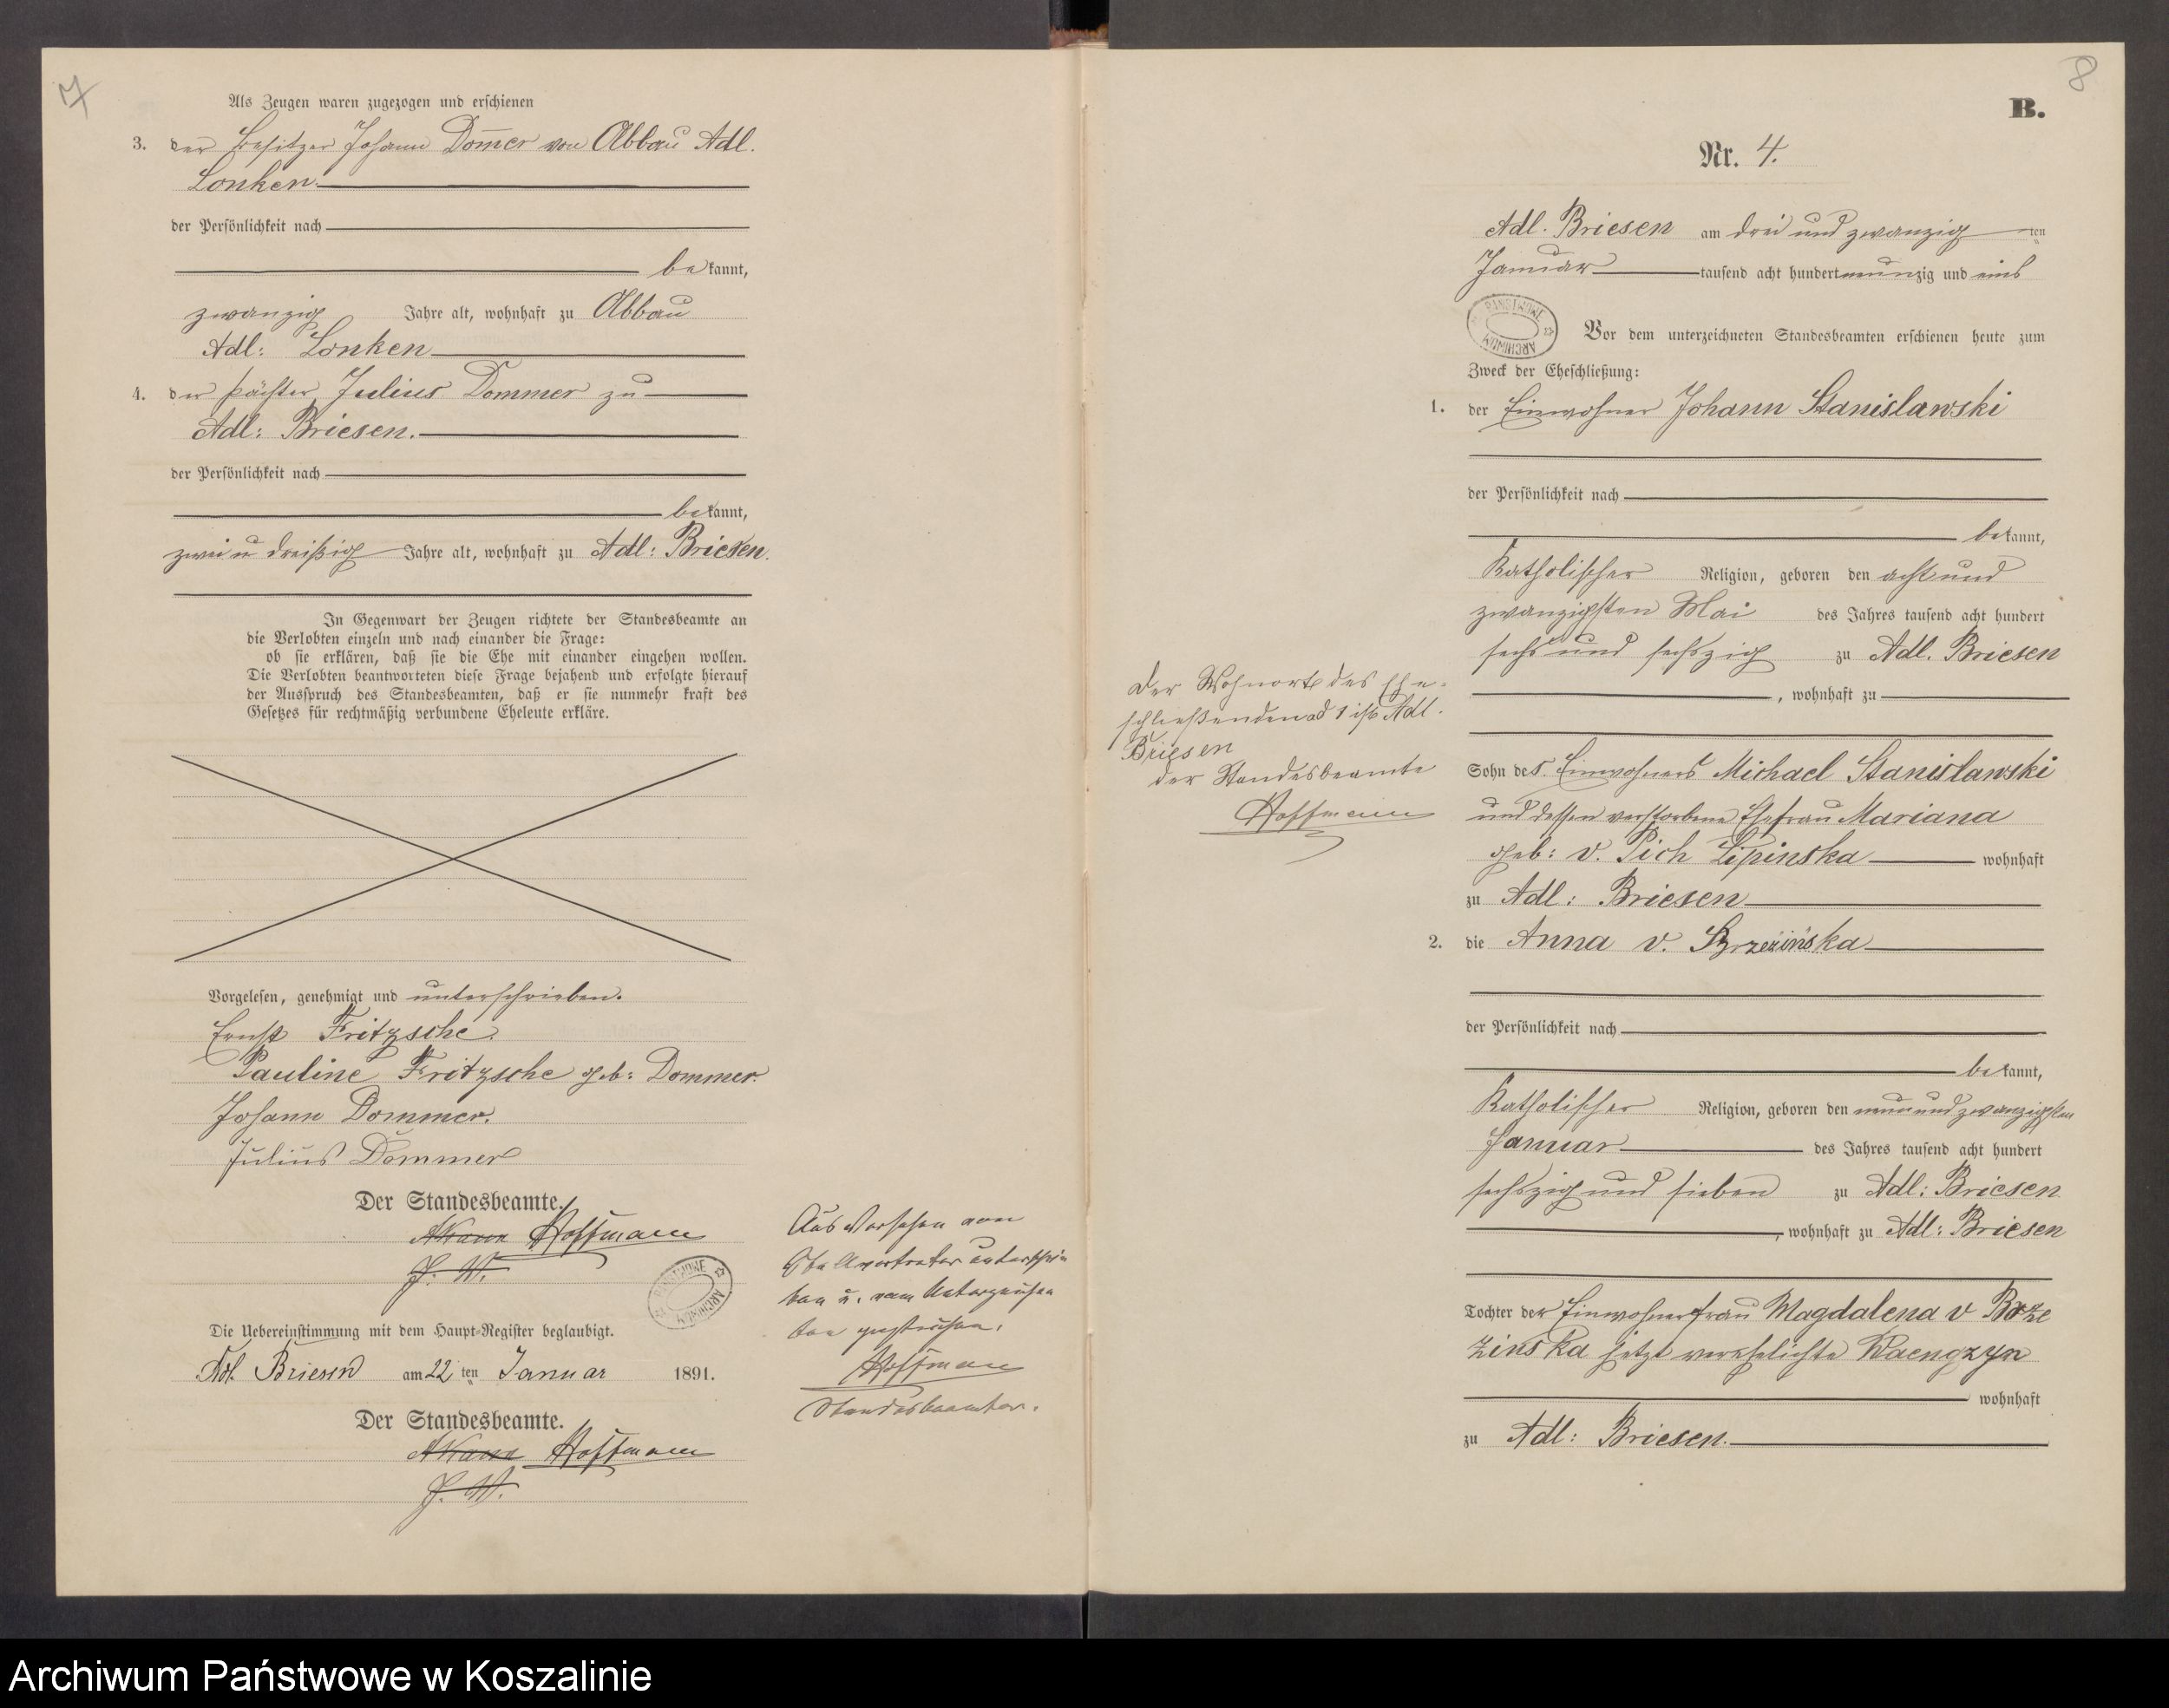 7
Als Zeugen waren zugezogen und erschienen
3. der Besitzer Johann Dom̅er von Abbau Adl.
Lonken.
der Persönlichkeit nach
bekannt,
zwanzig Jahre alt, wohnhaft zu Abbau
Adl: Lonken
4. der Pächter Julius Dommer zu
Adl: Briesen.
der Persönlichkeit nach
bekannt,
zwei u dreißig Jahre alt, wohnhaft zu Adl: Briesen.
In Gegenwart der Zeugen richtete der Standesbeamte an
die Verlobten einzeln und nach einander die Frage:
ob sie erklären, daß sie die Ehe mit einander eingehen wollen.
Die Verlobten beantworteten diese Frage bejahend und erfolgte hierauf
der Ausspruch des Standesbeamten, daß er sie nunmehr kraft des
Gesetzes für rechtmäßig verbundene Eheleute erkläre.
Vorgelesen, genehmigt und unterschrieben.
Ernst Fritzsche.
Pauline Fritzsche geb: Dommer.
Johann Dommer.
Julius Dommer
Der Standesbeamte.
Hoffmann
J. V.
Die Uebereinstimmung mit dem Haupt-Register beglaubigt.
Adl. Briesen am 22 ten Januar 1891.
Der Standesbeamte.
Hoffmann
J. V.
Aus Versehen vom
Stellvertreter unterschrie
ben u. vom Unterzeichne
ten gestrichen.
Hoffmann
Standesbeamter.
8
B.
Nr. 4.
Adl. Briesen am drei und zwanzig ten
Januar tausend acht hundert neunzig und eins
PAŃSTWOWE ARCHIWUM
Vor dem unterzeichneten Standesbeamten erschienen heute zum
Zweck der Eheschließung:
1. der Einwohner Johann Stanislawski
der Persönlichkeit nach
bekannt,
Katholischer Religion, geboren den acht und
zwanzigsten Mai des Jahres tausend acht hundert
sechs und sechszig zu Adl. Briesen
, wohnhaft zu
Der Wohnort des Ehe-
schließenden ad 1 ist Adl.
Briesen
der Standesbeamte
Hoffmann
Sohn des Einwohners Michael Stanislawski
und dessen verstorbene Ehefrau Mariana
geb: v. Pich Lipinska wohnhaft
zu Adl: Briesen
2. die Anna v.
der Persönlichkeit nach
bekannt,
Katholischer Religion, geboren den neun und zwanzigsten
Januar des Jahres tausend acht hundert
sechszig und sieben zu Adl: Briesen
, wohnhaft zu Adl: Briesen
Tochter der Einwohnerfrau Magdalena v
zinska jetzt verehelichte
wohnhaft
zu Adl: Briesen.
Archiwum Państwowe w Koszalinie